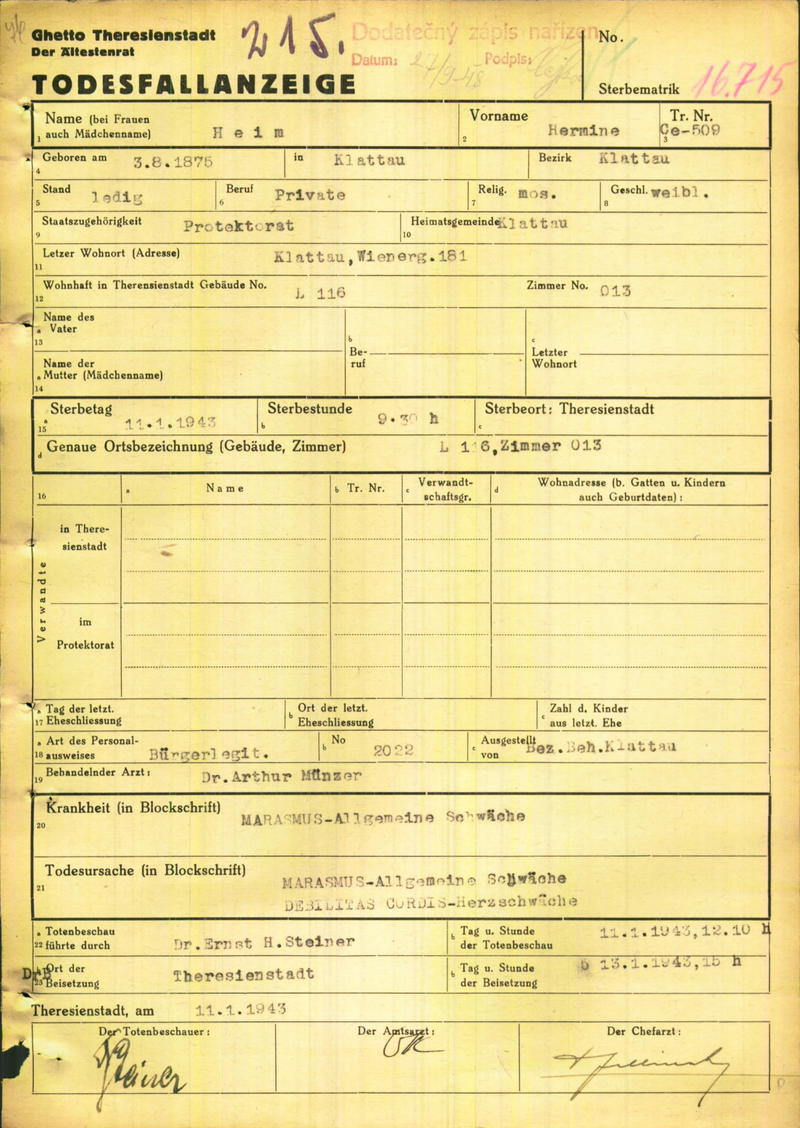 Ghetto Theresienstadt
Der Ältestenrat
215.
Dodatečný zápis nařízen
Datum: Podpis:
TODESFALLANZEIGE
No.
Sterbematrik 16.715
Name (bei Frauen
1 auch Mädchenname) Heim
Vorname
2 Hermine
Tr. Nr.
3 Ce-509
Geboren am
4 3.8.1875
in Klattau
Bezirk Klattau
Stand
5 ledig
Beruf
6 Private
Relig.
7 mos.
Geschl.
8 weibl.
Staatszugehörigkeit
9 Protektorat
Heimatsgemeinde
10 Klattau
Letzer Wohnort (Adresse)
11 Klattau,Wienerg.181
Wohnhaft in Therensienstadt Gebäude No.
12 L 116
Zimmer No. 013
Name des
a Vater
13
Name der
a Mutter (Mädchenname)
14
b
Be-
ruf
c
Letzter
Wohnort
Sterbetag
a
15 11.1.1943
Sterbestunde
b 9.30 h
Sterbeort: Theresienstadt
c
Genaue Ortsbezeichnung (Gebäude, Zimmer)
d L 116,Zimmer 013
16
a Name
b Tr. Nr.
c Verwandt-
schaftsgr.
d Wohnadresse (b. Gatten u. Kindern
auch Geburtdaten):
Verwandte
in There-
sienstadt
im
Protektorat
a Tag der letzt.
17 Eheschliessung
b Ort der letzt.
Eheschliessung
c Zahl d. Kinder
aus letzt. Ehe
a Art des Personal-
18 ausweises Bürgerlegit.
b No 2022
c Ausgestellt
von Bez.Beh.Klattau
19 Behandelnder Arzt: Dr.Arthur Münzer
Krankheit (in Blockschrift)
20 MARASMUS-Allgemeine Schwäche
Todesursache (in Blockschrift)
21 MARASMUS-Allgemeine Schwäche
DEBILITAS CORDIS-Herzschwäche
a Totenbeschau
22 führte durch Dr.Ernst H.Steiner
b Tag u. Stunde
der Totenbeschau 11.1.1943,12.10 h
a Ort der
23 Beisetzung Theresienstadt
b Tag u. Stunde
der Beisetzung 13.1.1943,15 h
Theresienstadt, am 11.1.1943
Der Totenbeschauer:
Der Amtsarzt:
Der Chefarzt: